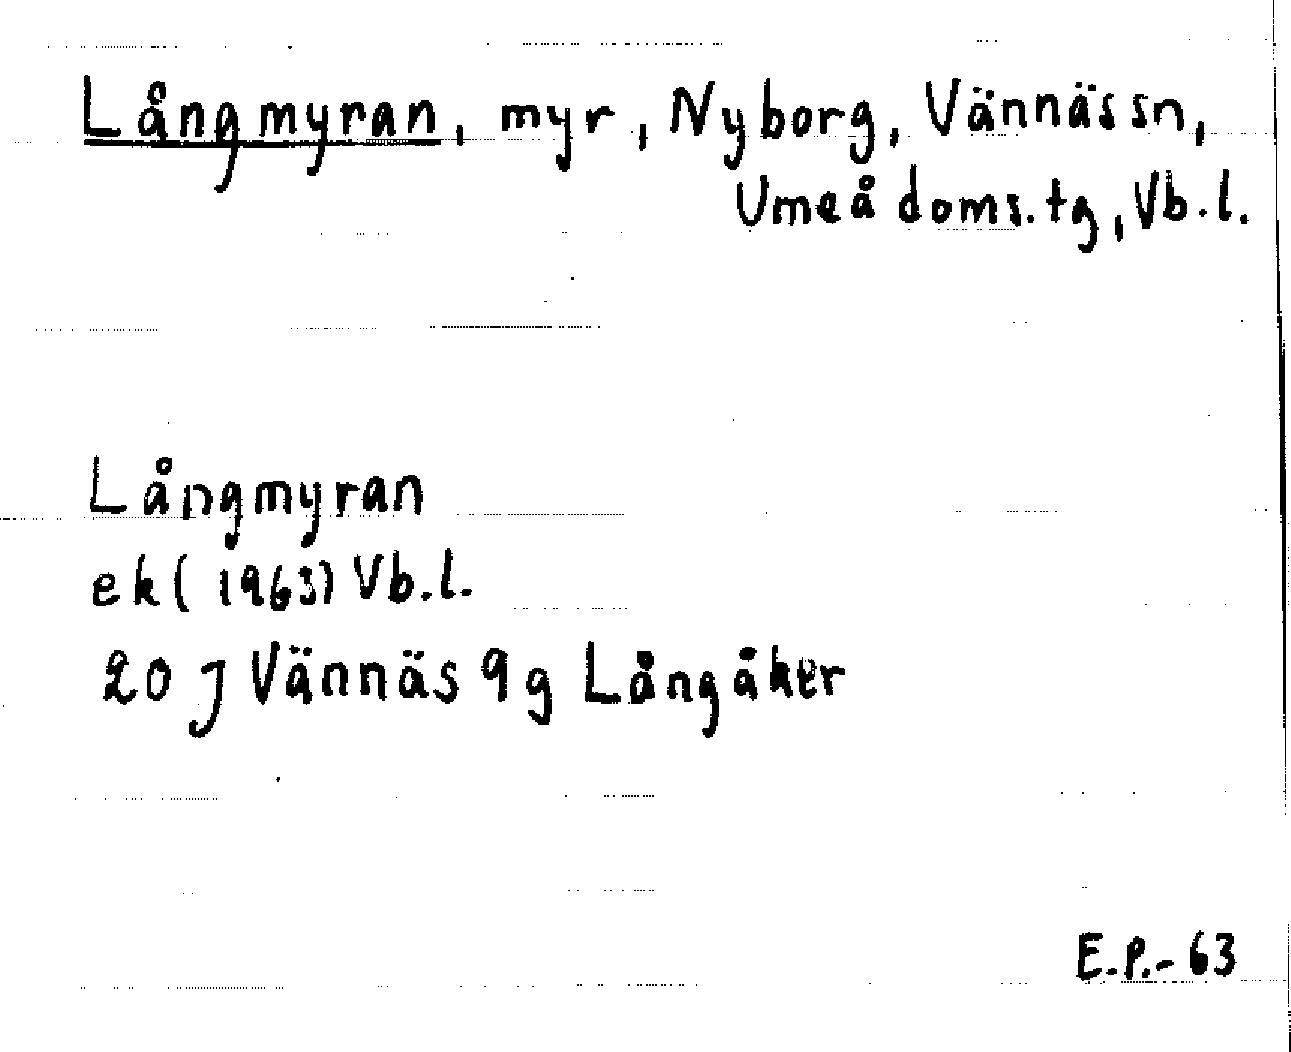 Långmyran, myr, Nyborg, Vännäs sn,
Umeå doms.tg, Vb.l.
Långmyran
ek (1963) Vb.l.
20 J Vännäs 9g Långåker
E.P.-63